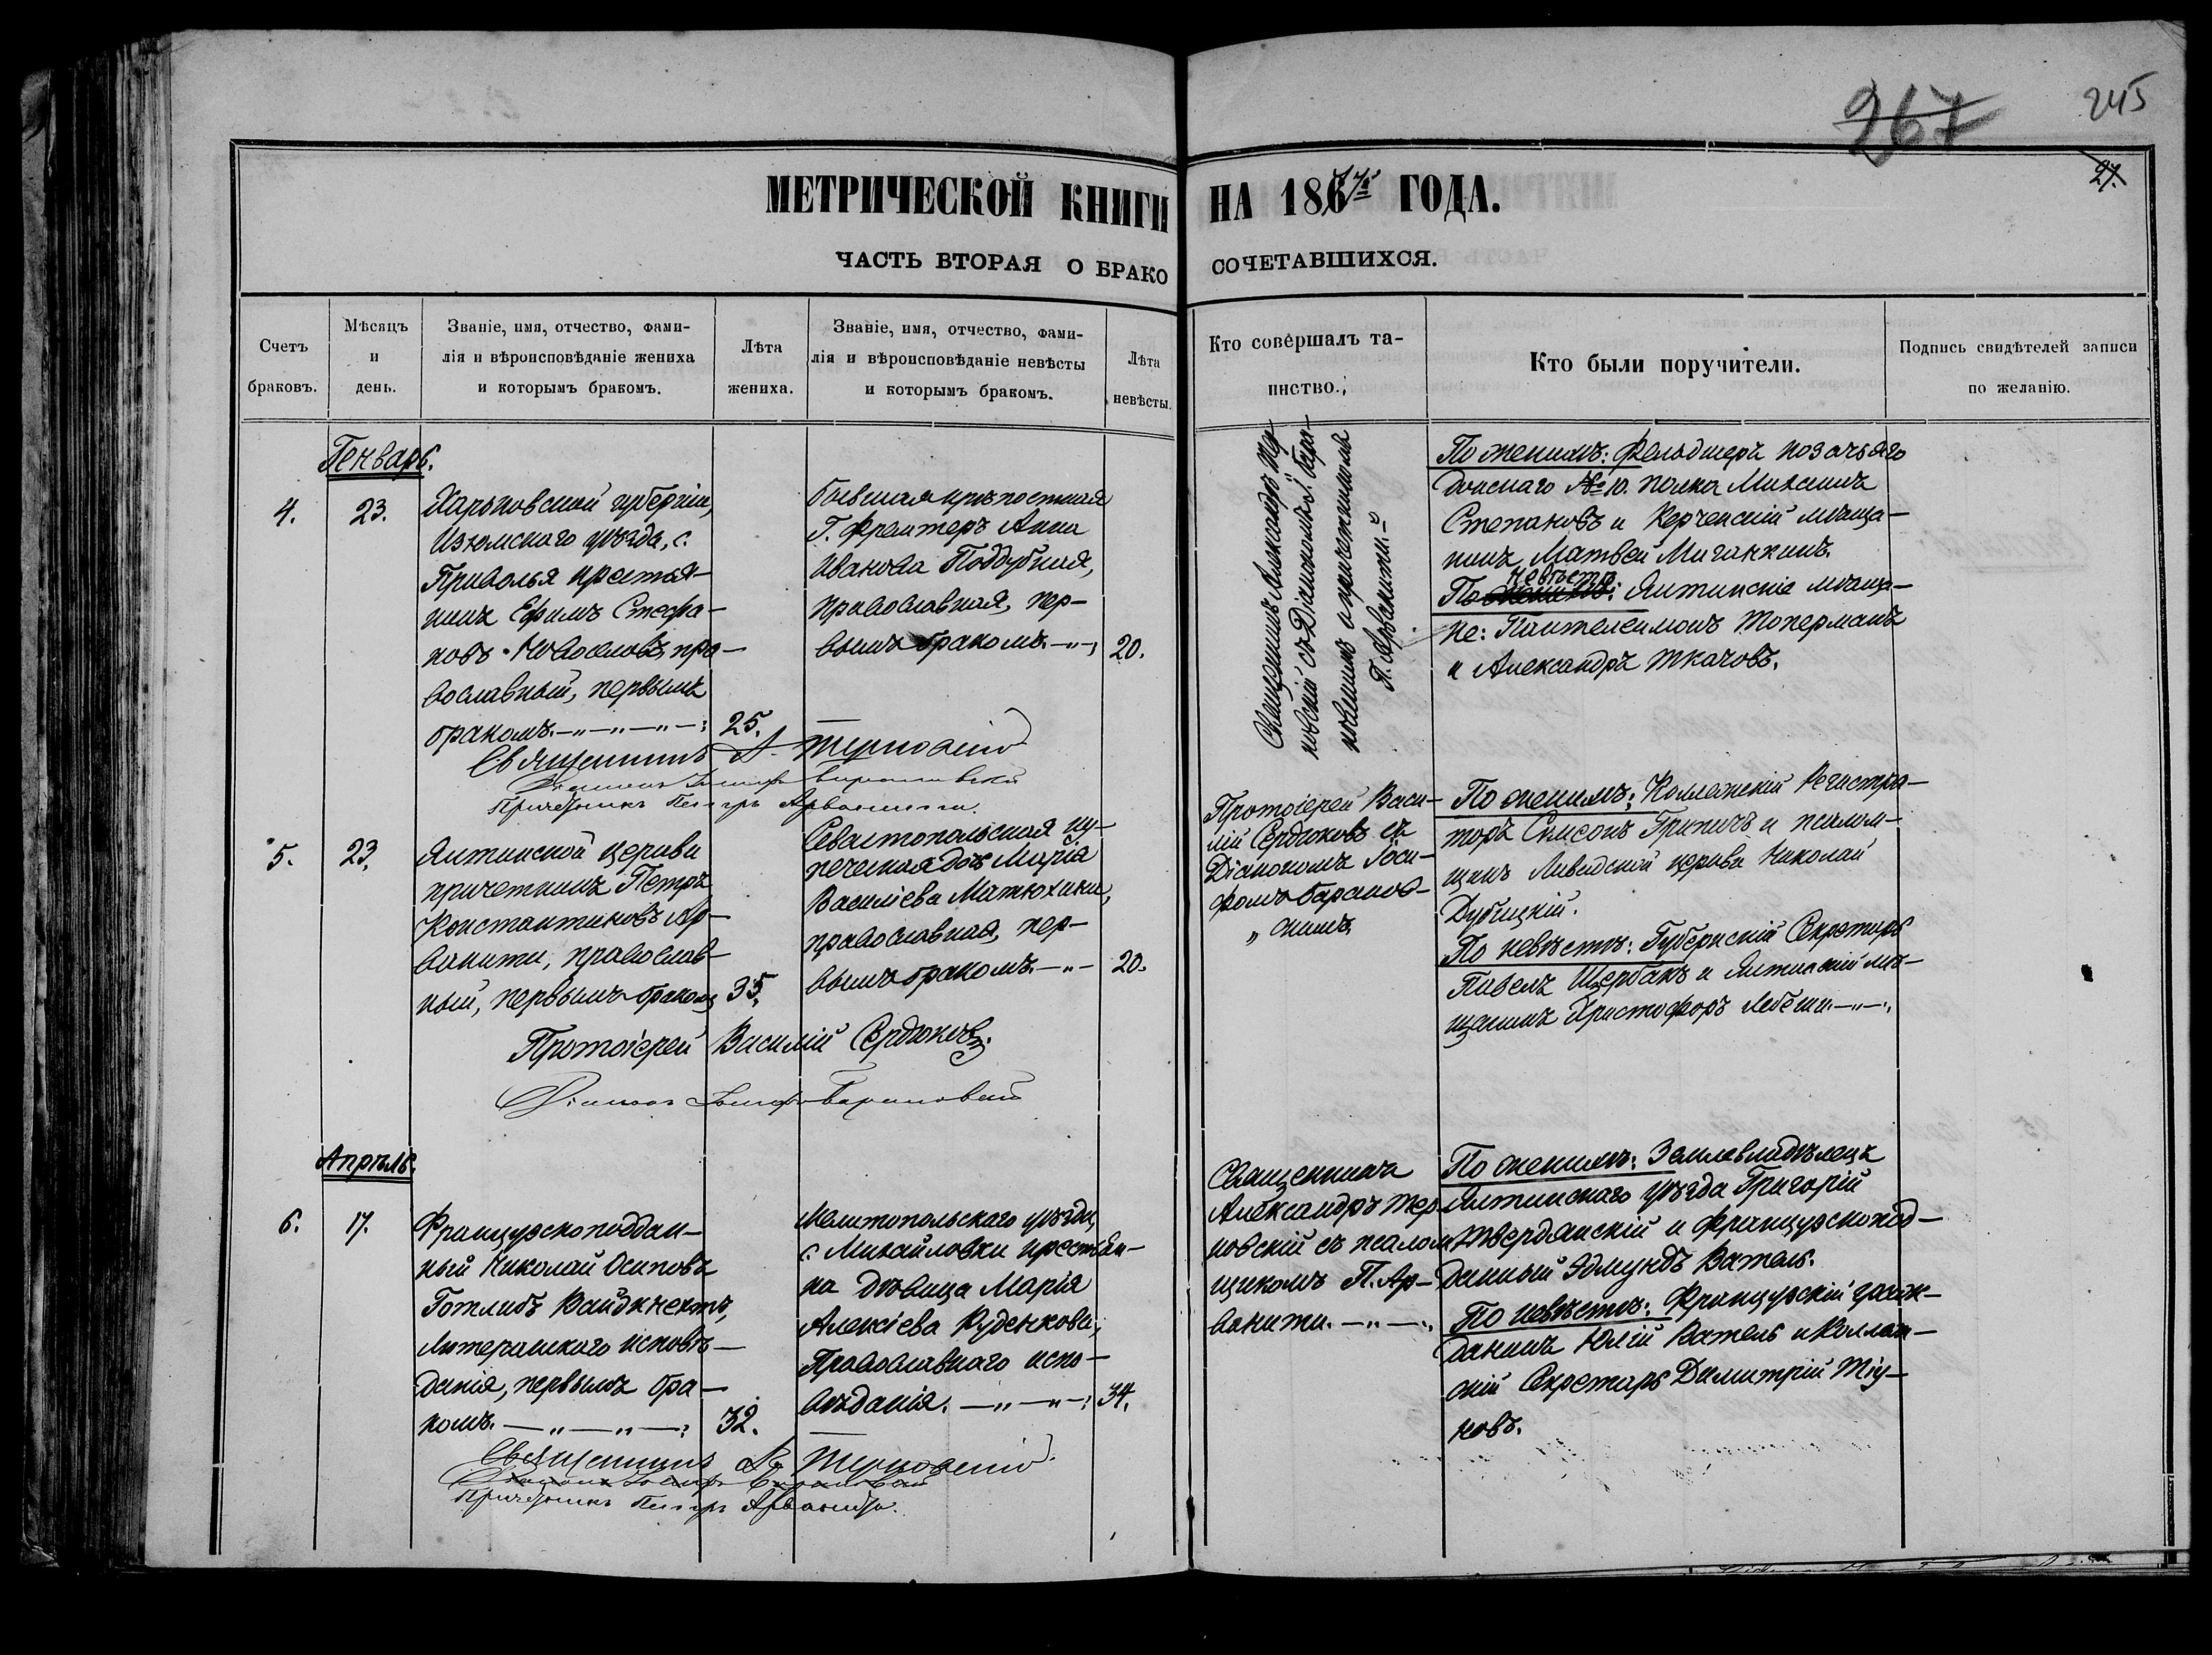 267
245
27.
МЕТРИЧЕСКОЙ КНИГИ НА 1867 ГОДА.
ЧАСТЬ ВТОРАЯ О БРАКО СОЧЕТАВШИХСЯ.
Счетъ
браковъ.
Мѣсяцъ
и
день.
Званіе, имя, отчество, фами-
лія и вѣроисповѣданіе жениха
и которымъ бракомъ.
Лѣта
жениха.
Званіе, имя, отчество, фами-
лія и вѣроисповѣданіе невѣсты
и которымъ бракомъ.
Лѣта
невѣсты.
Кто совершалъ та-
инство.
Кто были поручители.
Подпись свидѣтелей записи
по желанію.
Генварь.
4.
23.
Харьковской губерніи,
Изюмскаго уѣзда, с.
Приволья крестья-
нинъ Ефимъ Стефа-
новъ Новоселовъ, пра-
вославный, первымъ
бракомъ. —„—„—„—;
25.
бывшая крѣпостная
Г. Фремтеръ Анна
Иванова Поддубная,
православная, пер-
вымъ бракомъ. —„—;
20.
Священникъ Александръ Тер-
новскій съ Діакономъ І. Бара-
новскимъ и причетникомъ
П. Арванити.
По женихѣ: Фельдшеръ козачьяго
донскаго № 10. полка Михаилъ
Степановъ и Керченскій мѣща-
нинъ Матвей Миганкинъ.
По невѣстѣ: Ялтинскіе мѣща-
не: Пантелеимонъ Токерманъ
и Александръ Ткачовъ.
Священникъ А. Терновскій
Діаконъ Іосифъ Барановскій
Причетникъ Петръ Арванити.
5.
23.
Ялтинской церкви
причетникъ Петръ
Константиновъ Ар-
ванити, православ-
ный, первымъ бракомъ
35.
Севастопольская ку-
печеская дочь Марія
Василіева Матюхина,
православная, пер-
вымъ бракомъ. —„—
20.
Протоіерей Васи-
лій Сердюковъ съ
Діакономъ Іоси-
фомъ Баранов-
„ скимъ.
По женихѣ: Коллежскій Регистра-
торъ Симеонъ Грипичъ и псалом-
щикъ Ливадской церкви Николай
Дубицкій.
По невѣстѣ: Губернскій Секретарь
Павелъ Щербакъ и Ялтинскій мѣ-
щанинъ Христофоръ Лебеши. —„—;
Протоіерей Василій Сердюковъ.
Діаконъ Іосифъ Барановскій
Апрѣль.
6.
17.
Французскоподдан-
ный Николай Осиповъ
Готлибъ Вайдкнехтъ,
Лютеранскаго исповѣ-
данія, первымъ бра-
комъ. —„—„—;
32.
Мелитопольскаго уѣзда,
с. Михайловки крестьян-
ка дѣвица Марія
Алексіева Руденкова,
Православнаго испо-
вѣданія. —„—„—;
34.
Священникъ
Александръ Тер-
новскій съ псалом-
щикомъ П. Ар-
ванити. —„—;
По женихѣ: Землевладѣлецъ
Ялтинскаго уѣзда Григорій
Твердянскій и французскопод-
данный Эдмундъ Ватель.
По невѣстѣ: Французскій граж-
данинъ Юлій Ватель и Коллеж-
скій Секретарь Димитрій Тіу-
новъ.
Священникъ А. Терновскій
Діаконъ Іосифъ Барановскій
Причетникъ Петръ Арванити.